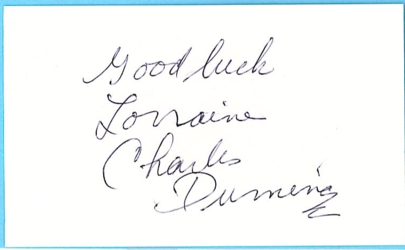 Good luck
Lorraine
Charles
Durning